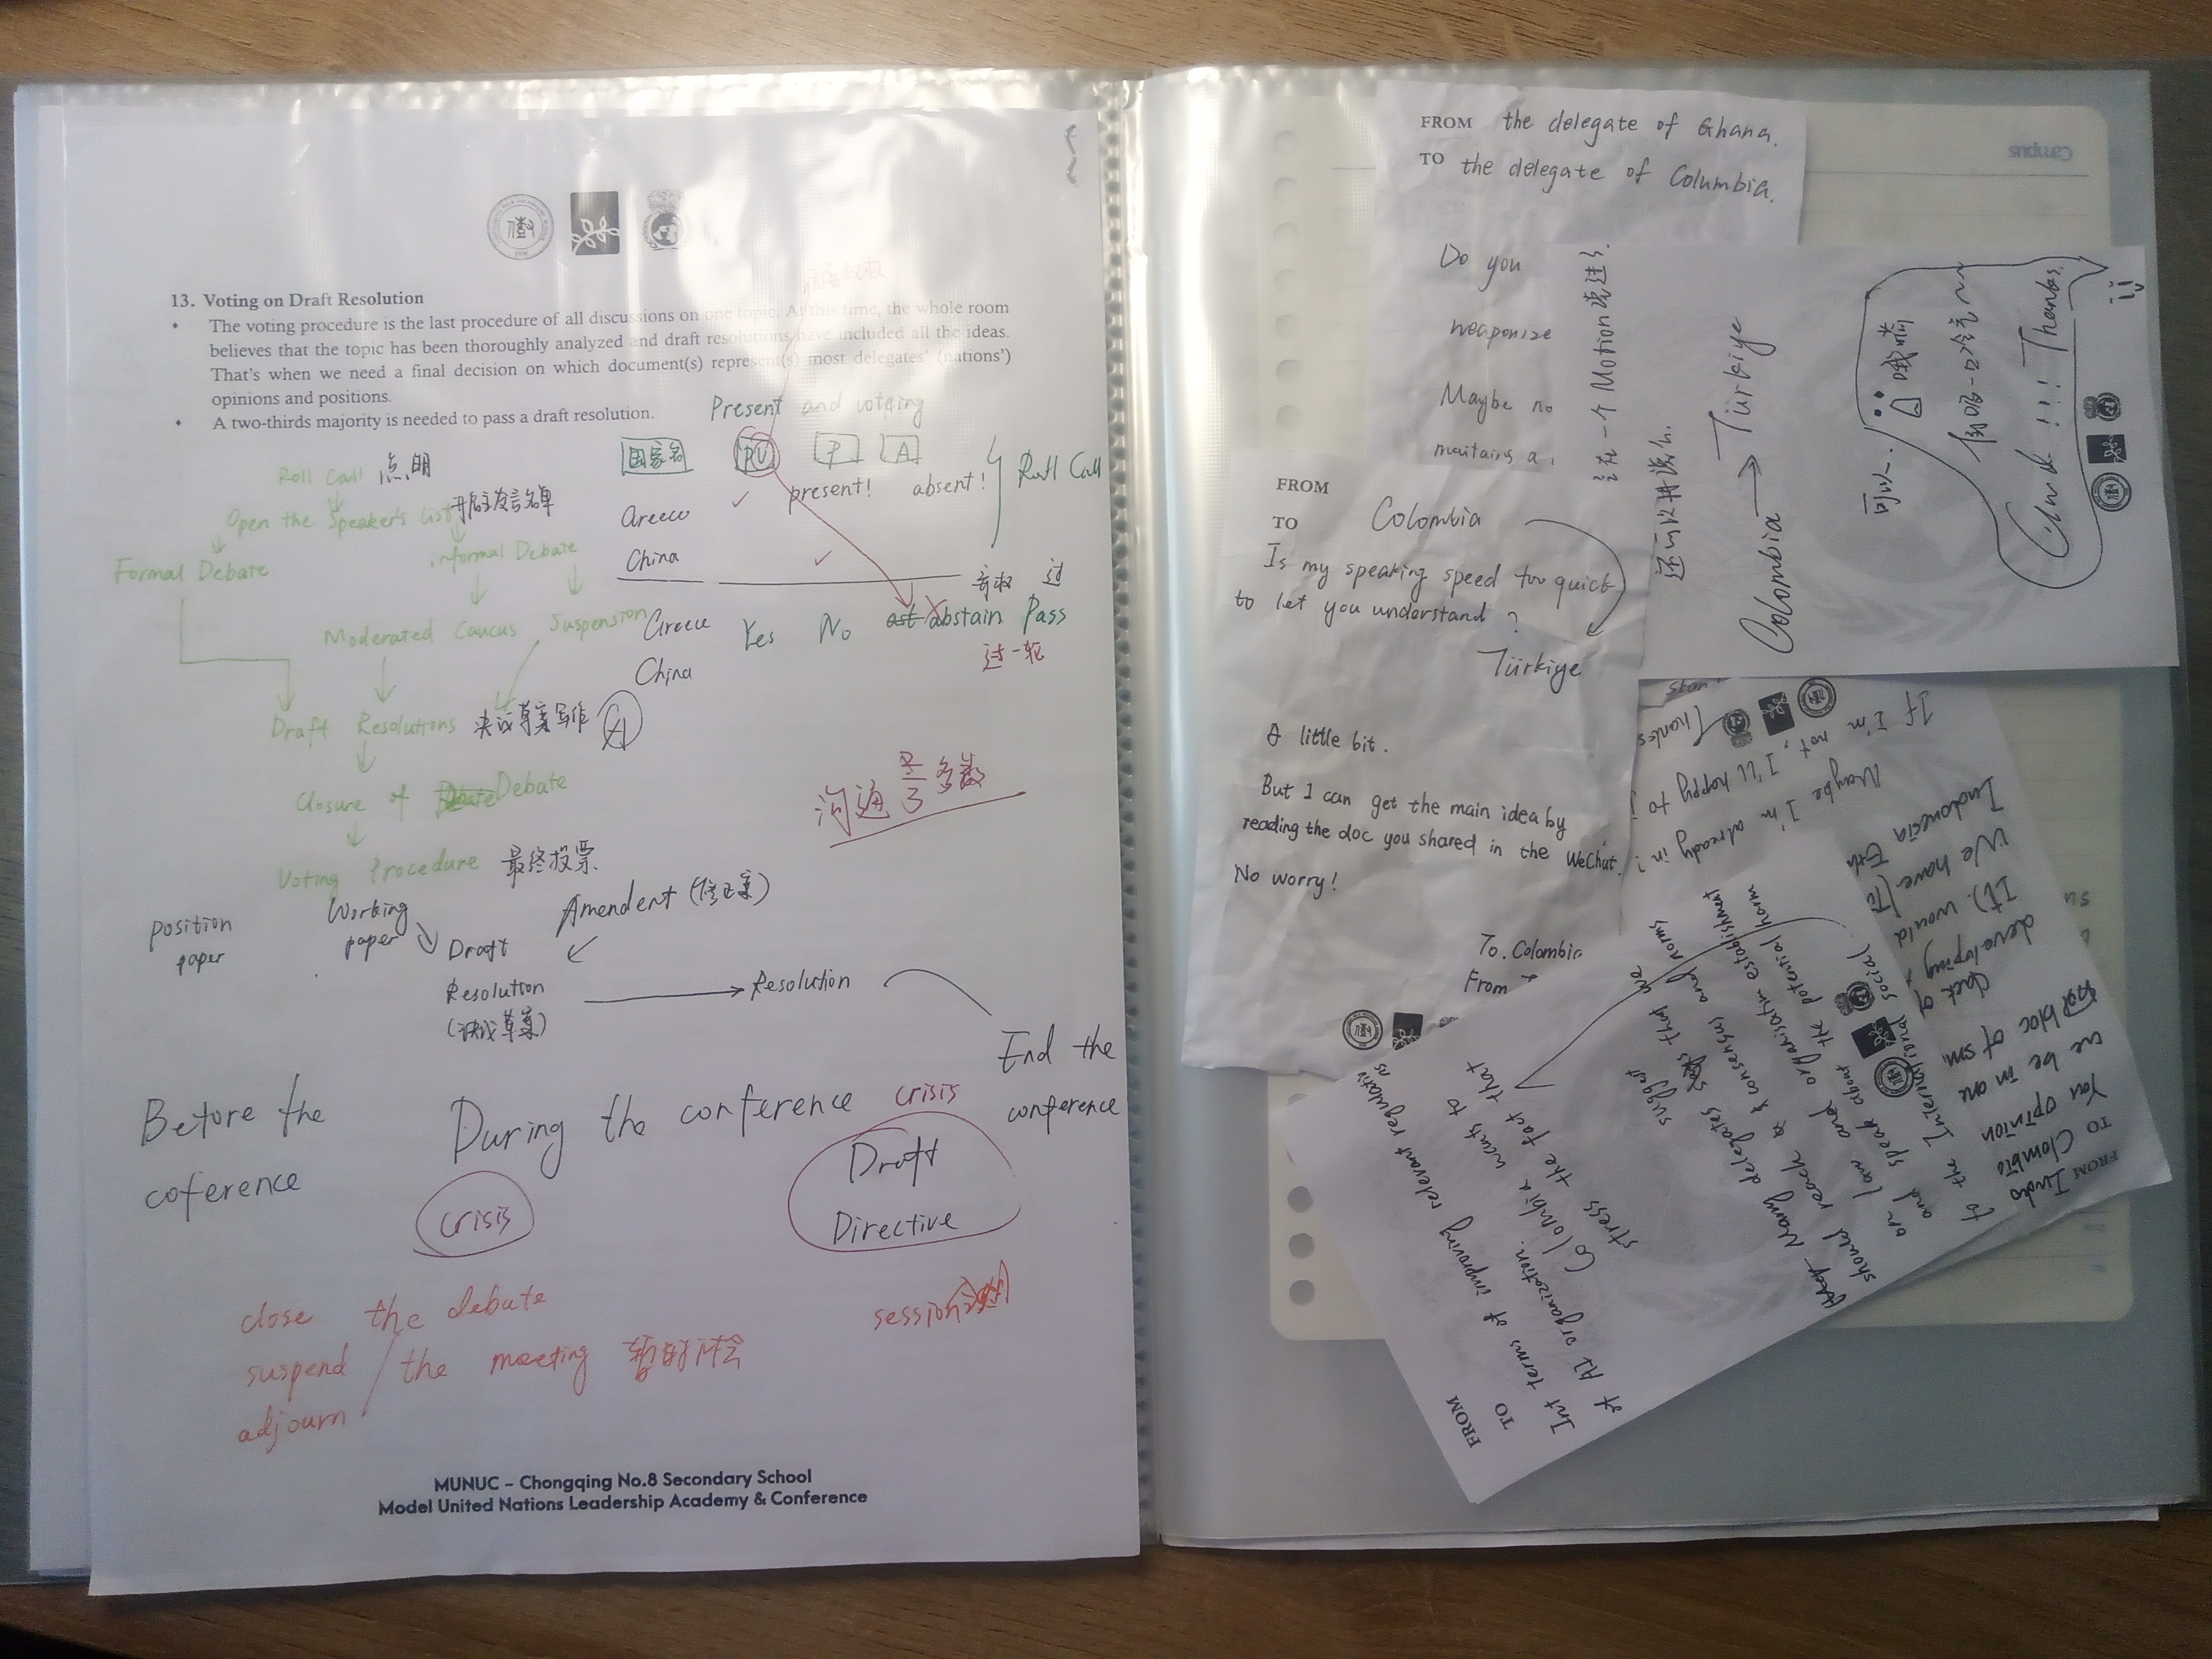 13. Voting on Draft Resolution
• The voting procedure is the last procedure of all discussions on one topic. At this time, the whole room
believes that the topic has been thoroughly analyzed and draft resolutions have included all the ideas.
That's when we need a final decision on which document(s) represent(s) most delegates' (nations')
opinions and positions.
• A two-thirds majority is needed to pass a draft resolution.
Present and voting
国家名 PV P A
present! absent! Roll Call
Greece
China
弃权 过
Greece Yes No abstain Pass
过一轮
China
Roll Call 点明
Open the Speaker's list 开启主发言名单
Formal Debate informal Debate
Moderated Caucus Suspension
Draft Resolutions 决议草案写作
Closure of Debate
Voting Procedure 最终投票
沟通 2/3 多数
position
paper
Working
paper
Amendent (修正案)
Draft
Resolution
(决议草案)
Resolution
End the
conference
Before the
coference
During the conference
crisis
crisis
Draft
Directive
close the debate
suspend the meeting 暂时休会
adjourn
session
MUNUC – Chongqing No.8 Secondary School
Model United Nations Leadership Academy & Conference
FROM the delegate of Ghana.
TO the delegate of Columbia.
Do you
weaponize
Maybe no
maitains a
Campus
FROM
TO Colombia
Is my speaking speed too quick
to let you understand ?
Türkiye
A little bit.
But I can get the main idea by
reading the doc you shared in the WeChat.
No worry!
To. Colombia
From
Colombia → Türkiye
可以.
哦莫
倒吸一口冷气~~
!!! Thanks.
If I'm not, I'll happy to j
Maybe I'm already in?
Thanks
FROM Indo
TO Clombia
You opinion
we be in one
bloc of sm
Indonesia Eth
We have
It). would
developing,
FROM
TO
Int terms of improving relevant regulativ ns
of AI organization.
Colombia wants to
stress the fact that
Many delegates
suggest that we
should reach consensus and norms
on law and organisation establishment
and speak about the potential norm
to the International social